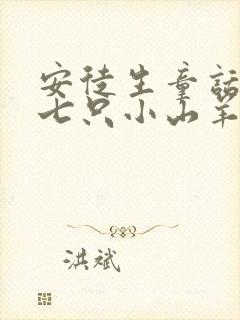 安徒生童話
七只小山羊
洪斌